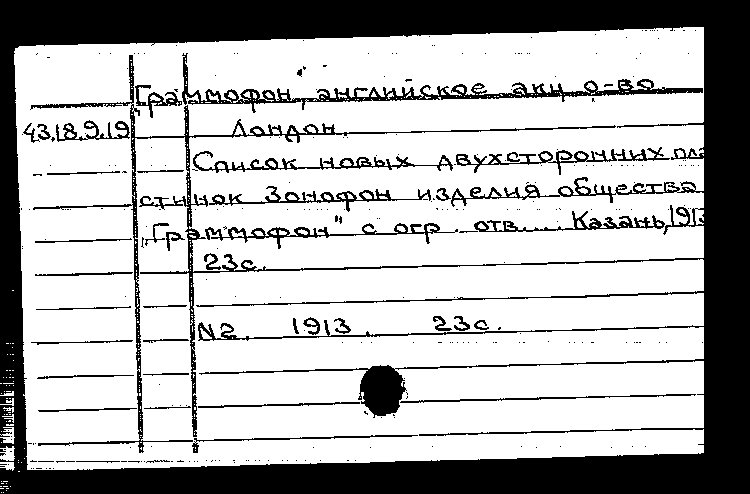 „Граммофон", английское акц о-во.
43.18.9.19 Лондон.
Список новых двухсторонних пла
стинок Зонофон изделия общества
„Граммофон" с огр. отв.... Казань, 1913
23с.
N2. 1913. 23с.